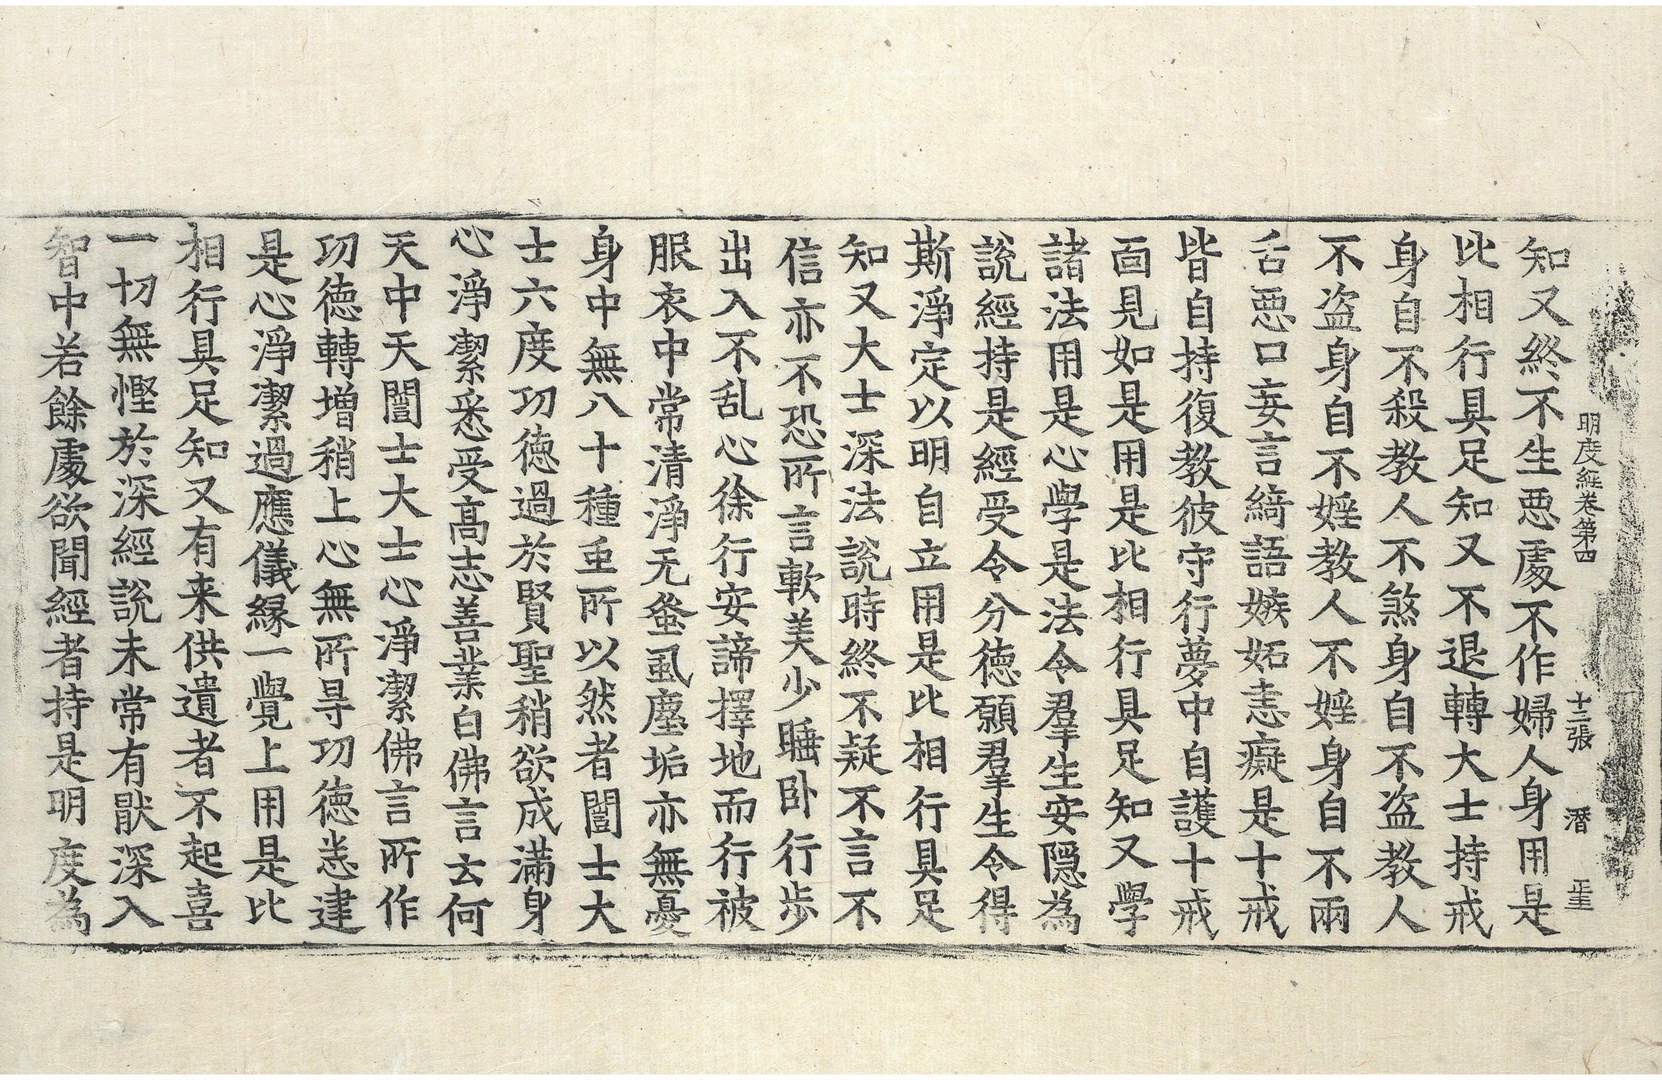 明度經卷第四　十二張　潛　王重
知又終不生惡處不作婦人身用是
比相行具足知又不退轉大士持戒
身自不殺教人不煞身自不盜教人
不盜身自不婬教人不婬身自不兩
舌惡口妄言綺語嫉妬恚癡是十戒
皆自持復教彼守行夢中自護十戒
面見如是用是比相行具足知又學
諸法用是心學是法令羣生安隱為
說經持是經受令分德願羣生令得
斯淨定以明自立用是比相行具足
知又大士深法說時終不疑不言不
信亦不恐所言軟美少睡卧行步
出入不乱心徐行安諦擇地而行被
服衣中常清淨无蚤虱塵垢亦無憂
身中無八十種重所以然者闓士大
士六度功德過於賢聖稍欲成滿身
心淨潔悉受高志善業白佛言云何
天中天闓士大士心淨潔佛言所作
功德轉增稍上心無所导功德悉逮
是心淨潔過應儀緣一覺上用是比
相行具足知又有来供遺者不起喜
一切無慳於深經說未常有猒深入
智中若餘處欲聞經者持是明度為